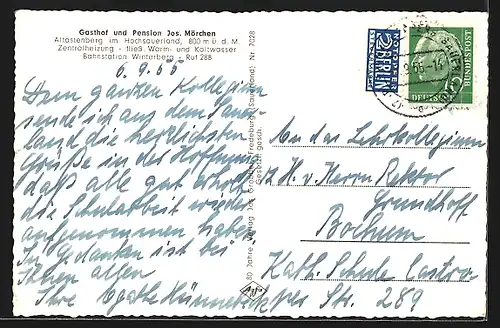 Gasthof und Pension Jos. Mörchen
Altastenberg im Hochsauerland, 800 m ü. d. M.
Zentralheizung - fließ. Warm- und Kaltwasser
Bahnstation Winterberg - Ruf 288
6.9.55
Dem ganzen Kollegium
sende ich aus dem Sauer-
land die herzlichsten
Grüße in der Hoffnung,
daß alle gut erholt
die Schularbeit wieder
aufgenommen haben.
In Gedanken ist bei
Ihnen allen
Ihre Agathe
80 Jahre Verlag Jos. Grobbel, Fredeburg (Sauerland) Nr. 7028
Gesetzl. gesch.
NOTOPFER
2 BERLIN
STEUERMARKE
DEUTSCHE BUNDESPOST
An das Lehrkollegium
z. H. v. Herrn Rektor
Grundhoff
Bochum
Kath. Schule Castro-
per Str. 289